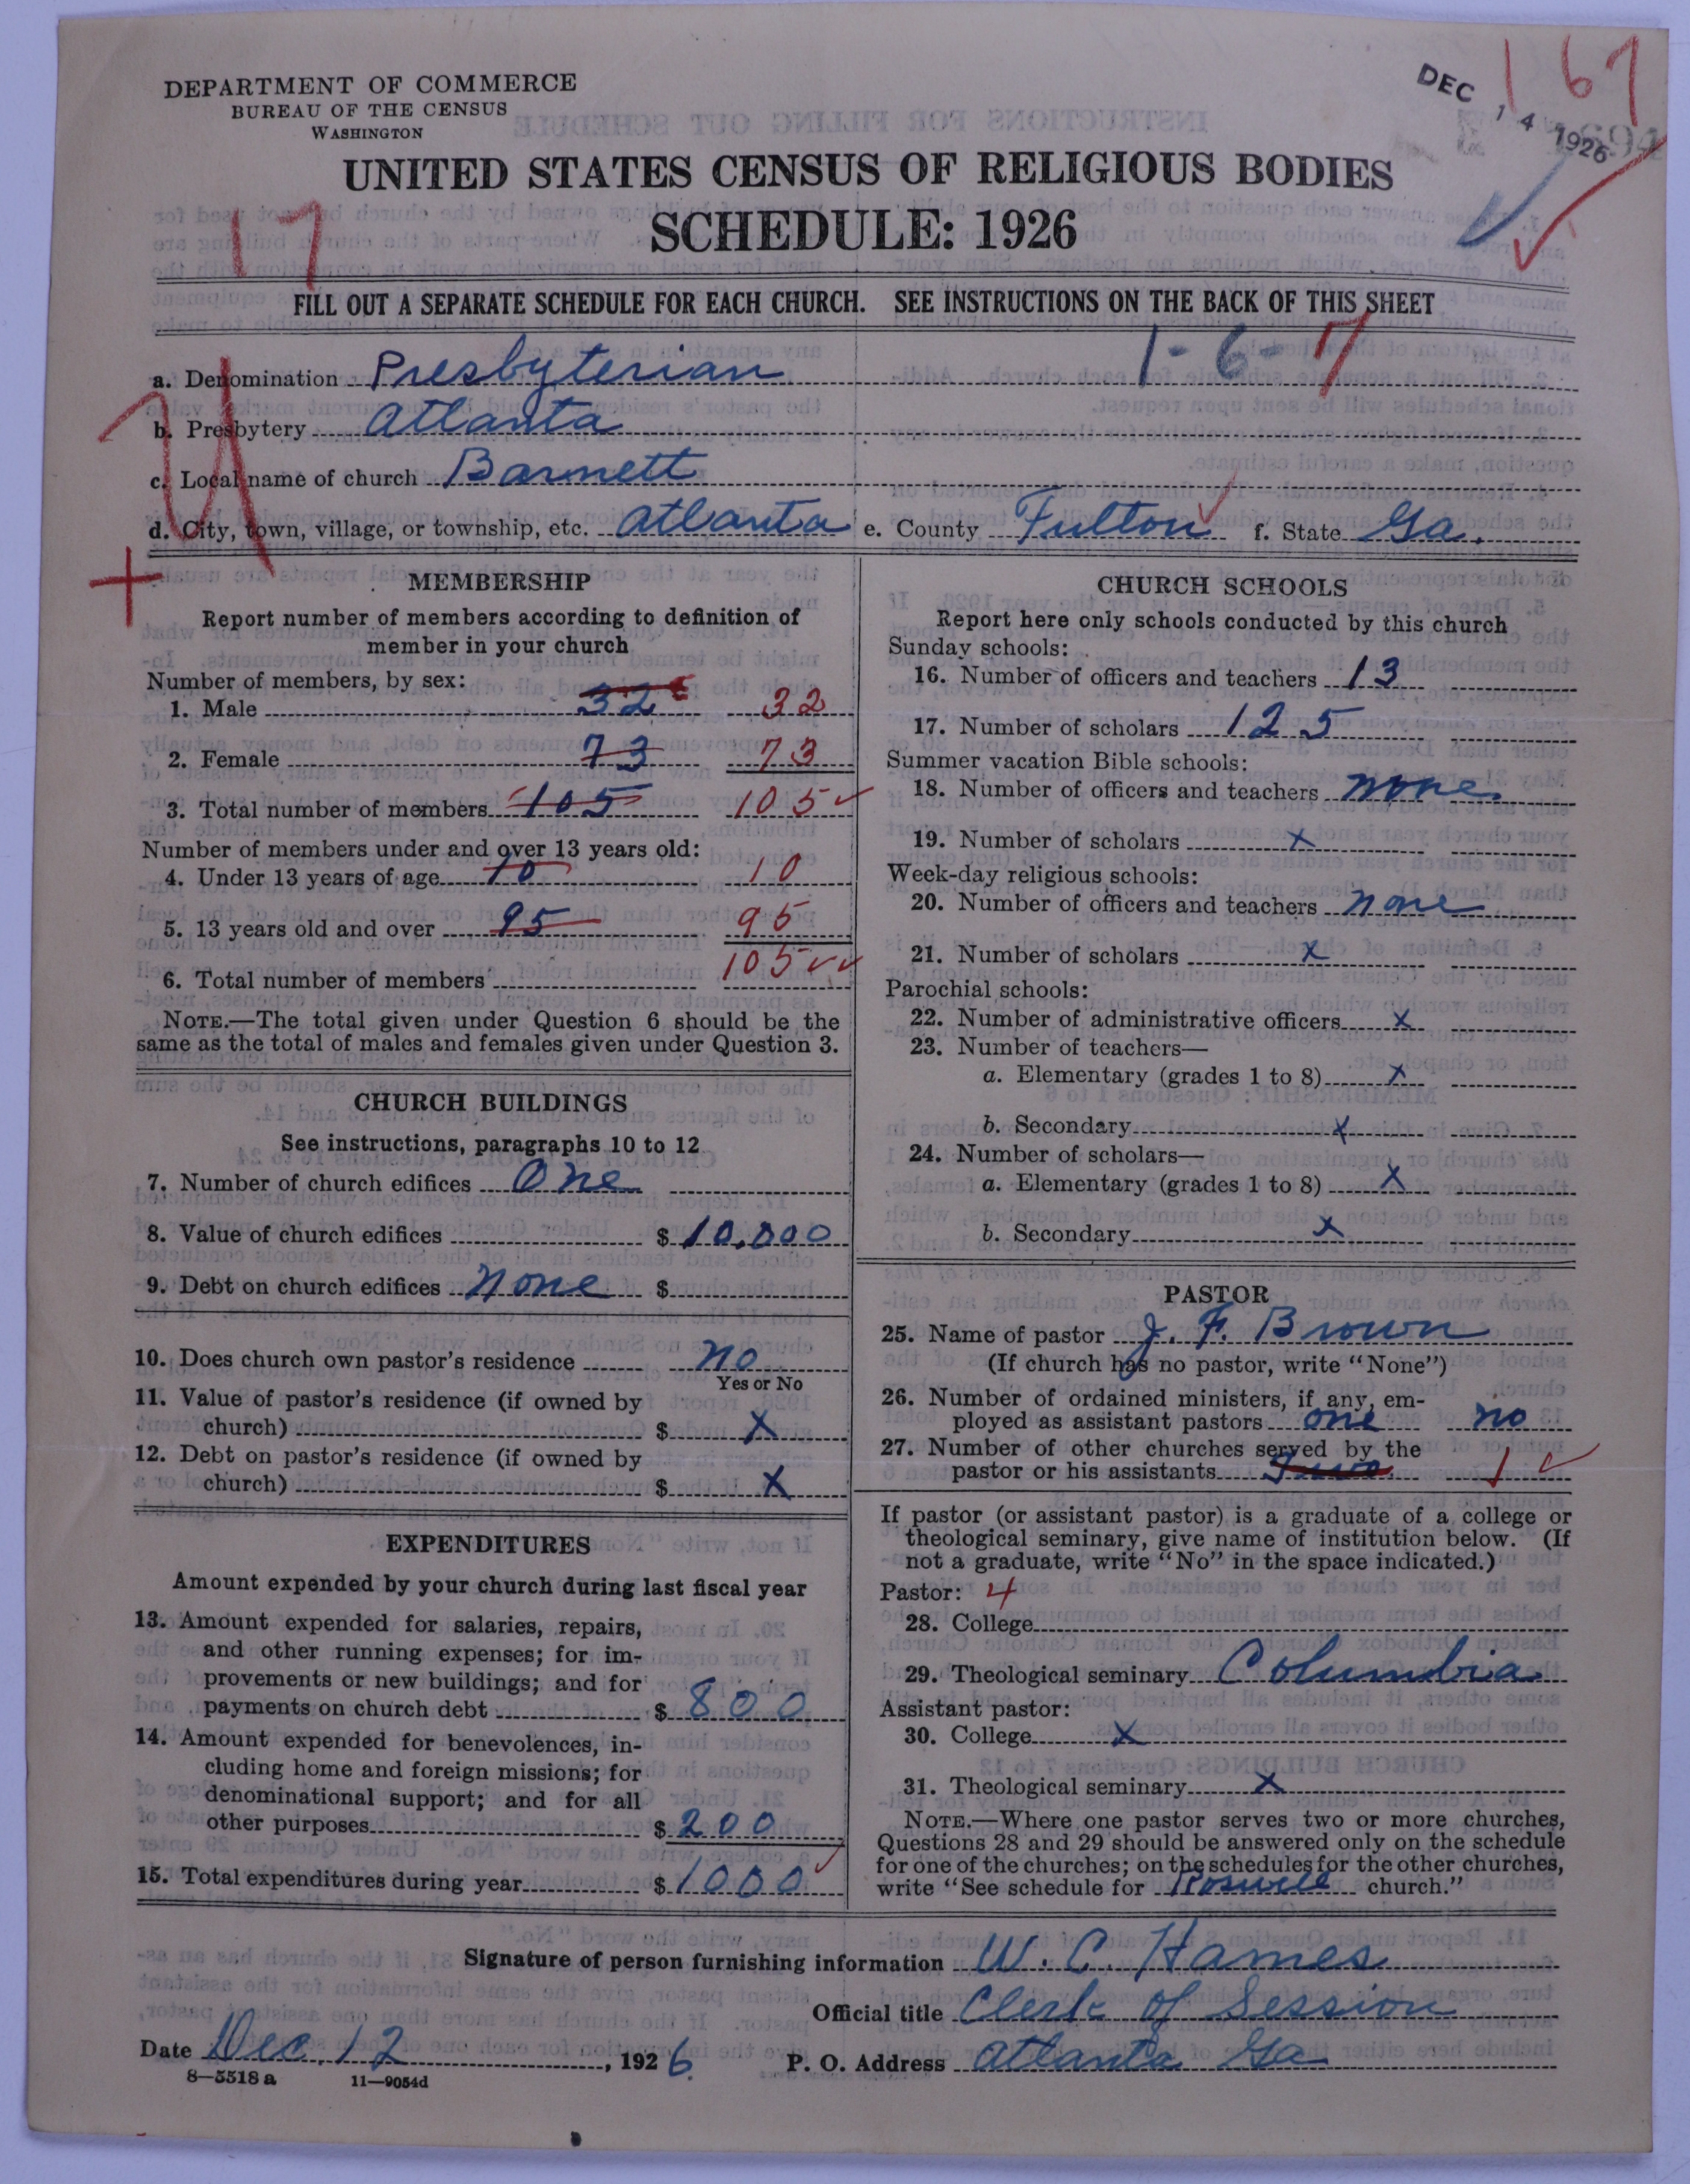 DEPARTMENT OF COMMERCE
BUREAU OF THE CENSUS
WASHINGTON
DEC 14 1926
167
UNITED STATES CENSUS OF RELIGIOUS BODIES
SCHEDULE: 1926
17
FILL OUT A SEPARATE SCHEDULE FOR EACH CHURCH. SEE INSTRUCTIONS ON THE BACK OF THIS SHEET
1-6-7
a. Denomination Presbyterian
b. Presbytery Atlanta
c. Local name of church Barnett
d. City, town, village, or township, etc. Atlanta e. County Fulton f. State Ga.
MEMBERSHIP
Report number of members according to definition of
member in your church
Number of members, by sex:
1. Male 32 32
2. Female 73 73
3. Total number of members 105 105
Number of members under and over 13 years old:
4. Under 13 years of age 10 10
5. 13 years old and over 95 95
6. Total number of members 105
NOTE.—The total given under Question 6 should be the
same as the total of males and females given under Question 3.
CHURCH BUILDINGS
See instructions, paragraphs 10 to 12
7. Number of church edifices One
8. Value of church edifices $ 10,000
9. Debt on church edifices none $
10. Does church own pastor's residence no
Yes or No
11. Value of pastor's residence (if owned by
church) $ X
12. Debt on pastor's residence (if owned by
church) $ X
EXPENDITURES
Amount expended by your church during last fiscal year
13. Amount expended for salaries, repairs,
and other running expenses; for im-
provements or new buildings; and for
payments on church debt $ 800
14. Amount expended for benevolences, in-
cluding home and foreign missions; for
denominational support; and for all
other purposes $ 200
15. Total expenditures during year $ 1000
CHURCH SCHOOLS
Report here only schools conducted by this church
Sunday schools:
16. Number of officers and teachers 13
17. Number of scholars 125
Summer vacation Bible schools:
18. Number of officers and teachers none.
19. Number of scholars X
Week-day religious schools:
20. Number of officers and teachers none
21. Number of scholars X
Parochial schools:
22. Number of administrative officers X
23. Number of teachers—
a. Elementary (grades 1 to 8) X
b. Secondary X
24. Number of scholars—
a. Elementary (grades 1 to 8) X
b. Secondary X
PASTOR
25. Name of pastor J. F. Brown
(If church has no pastor, write "None")
26. Number of ordained ministers, if any, em-
ployed as assistant pastors one no
27. Number of other churches served by the
pastor or his assistants Two 1
If pastor (or assistant pastor) is a graduate of a college or
theological seminary, give name of institution below. (If
not a graduate, write "No" in the space indicated.)
Pastor: 4
28. College
29. Theological seminary Columbia
Assistant pastor:
30. College X
31. Theological seminary X
NOTE.—Where one pastor serves two or more churches,
Questions 28 and 29 should be answered only on the schedule
for one of the churches; on the schedules for the other churches,
write "See schedule for Roswell church."
Signature of person furnishing information W. C. Hames
Official title Clerk of Session
Date Dec. 12, 1926 P. O. Address Atlanta Ga
8—5518 a 11—9054d